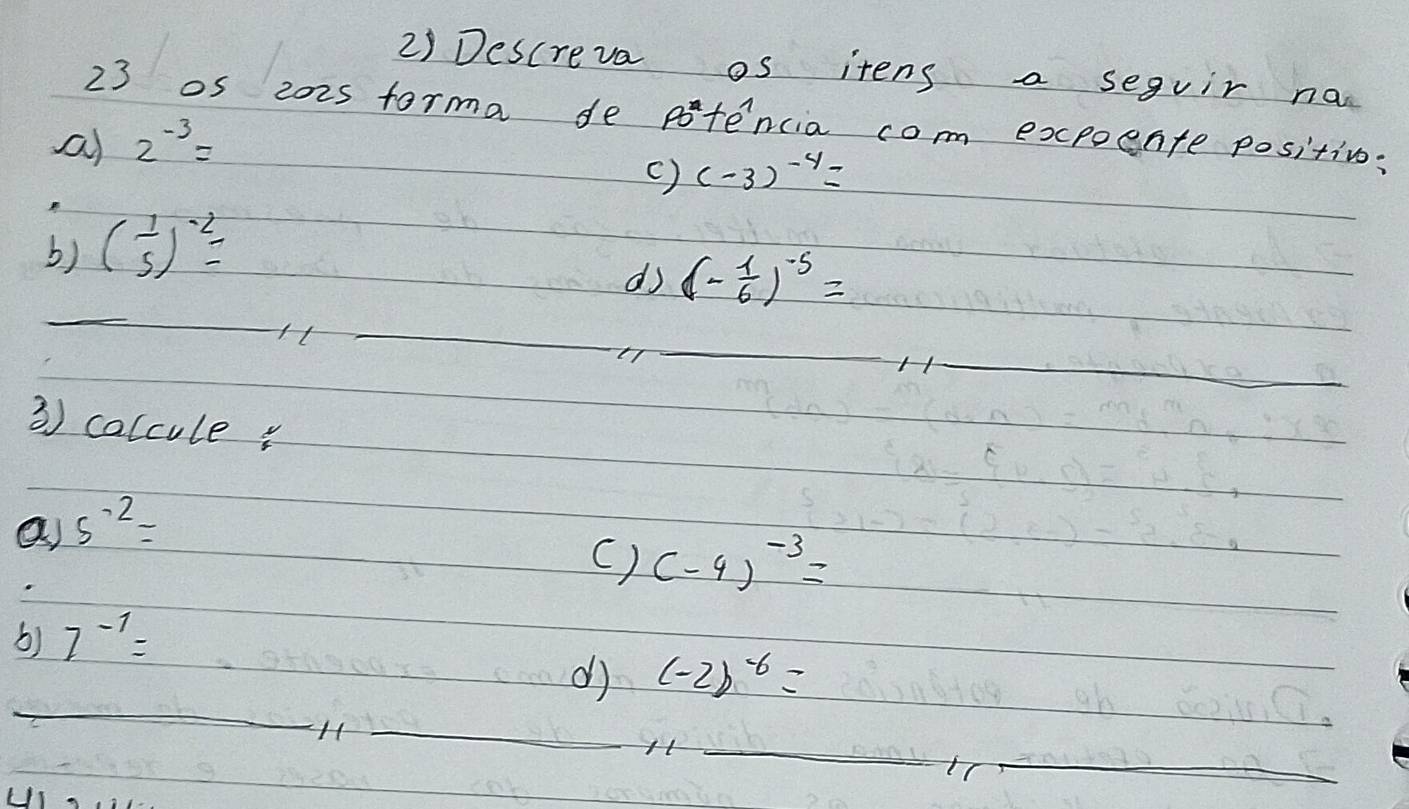 2) Descreva os itens a seguir na
23 os 2025 forma de potência com expoente positivo:
a) 2⁻³ =
c) (-3)⁻⁴ =
b) (1/5)⁻² =
d) (-1/6)⁻⁵ =
3) calcule :
a) 5⁻² =
c) (-4)⁻³ =
b) 7⁻¹ =
d) (-2)⁻⁶ =
4)